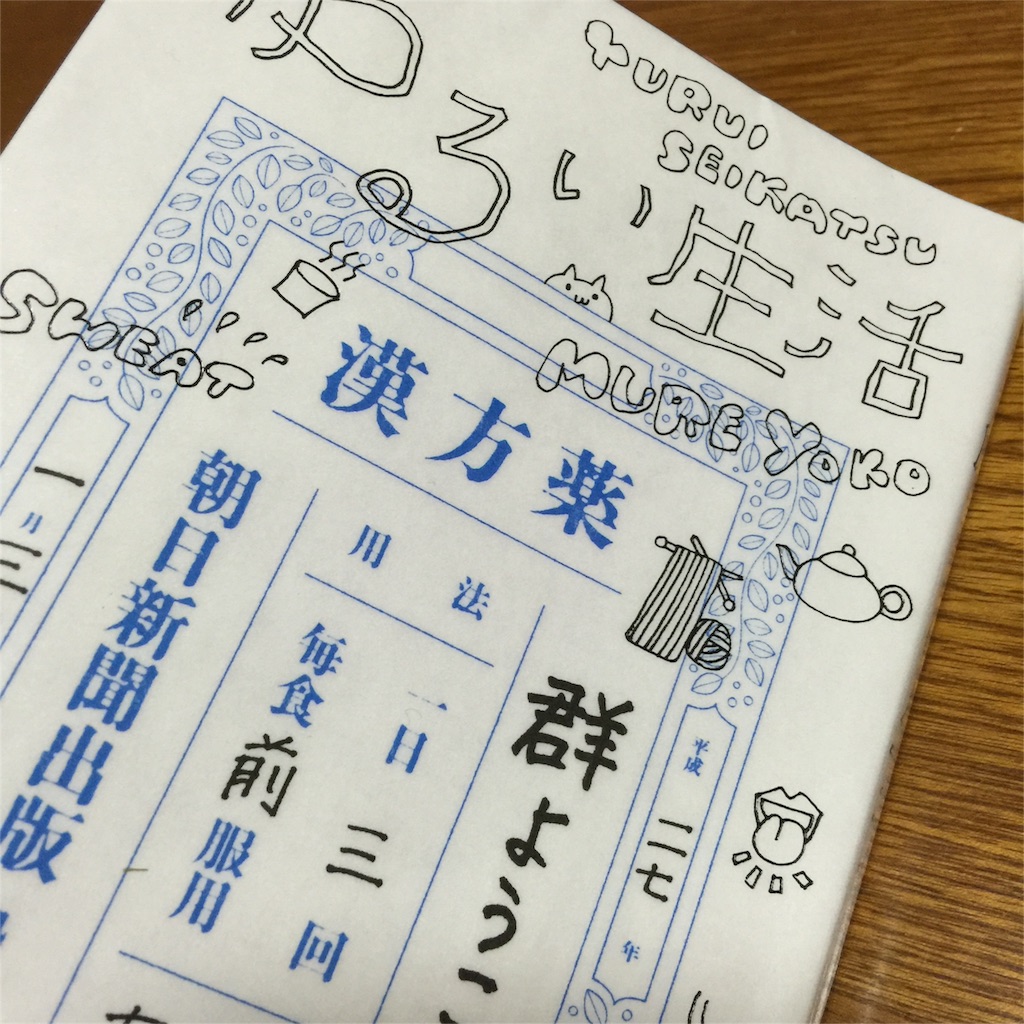 ゆるい生活
YURUI
SEIKATSU
MURE YOKO
SWEAT
漢方薬
平成 二七 年
群ようこ
用法
一日 三 回
毎食 前 服用
朝日新聞出版
一 月 三